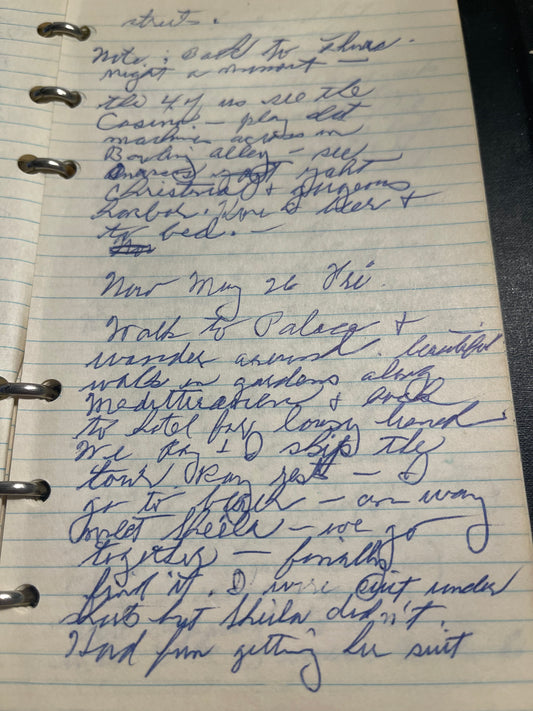 streets.
Note: Back to Thurs.
night a moment —
the 4 of us see the
Casino — play slot
machines across in
Bowling alley — see
yacht
Christina & gorgeous
harbor. Home & beer &
to bed. —
Now May 26 Fri.
Walk to Palace &
wander around. beautiful
walk in gardens along
Mediterranean & back
to hotel for lousy lunch
We Ray & I skip the
tour. Ray rests — I
go to beach — on way
meet Sheila — we go
together — finally
find it. I wore suit under
but Sheila didn't.
Had fun getting her suit